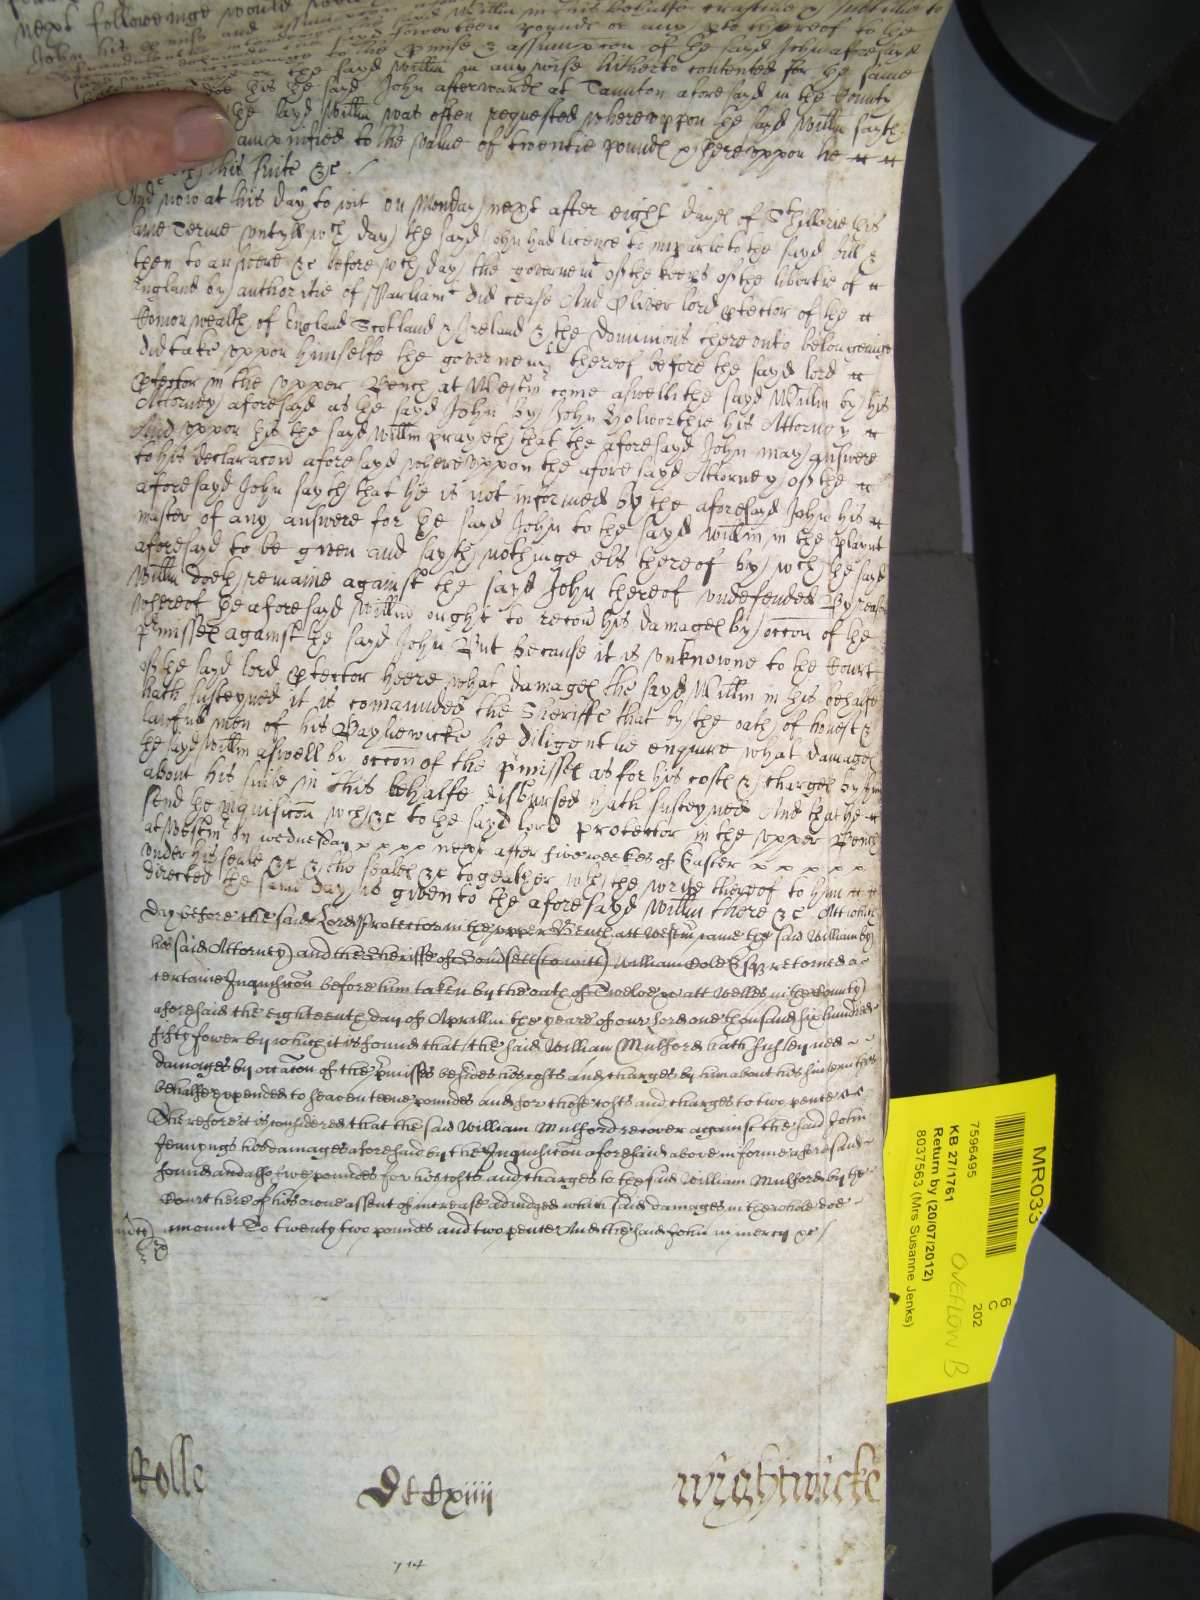 next followeinge would
John his pmiss and assumpcon
to the pmise & assumpcon of the sayd John aforesayd
the sayd Willm in any wise hitherto contented for the same
doe this the sayd John afterwardℓ at Taunton aforesayd in the County
the sayd Willm was often requested whereuppon the sayd Willm sayth
dampnified to the value of twentie poundℓ & thereuppon he
his suite &c
And now at this day to wit on Monday next after eight dayeℓ of St Hillarie this
same Terme untyll wch day the sayd John had licence to imparle to the sayd bill &
then to answere &c before wch day the governemt of the keeps of the libertie of
England by authoritie of Parliamt did cease And Oliver lord ptector of the
Comonwealth of England Scotland & Ireland & the dominions thereonto belongeinge
did take uppon himselfe the governemt thereof before the sayd lord
ptector in the upper Bench at Westm come aswell the sayd Willm by his
Attorney aforesayd as the sayd John by John Holworthie his Attorney
And uppon this the sayd Willm prayeth that the aforesayd John may answere
to his declaracon aforesayd whereuppon the aforesayd Attorney of the
aforesayd John sayth that he is not informed by the aforesayd John his
master of any answere for the sayd John to the sayd Willm in the playnt
aforesayd to be given and sayth nothinge els thereof by wch the sayd
Willm doth remaine against the sayd John thereof undefended By reason
whereof the aforesayd Willm ought to recou his damageℓ by occon of the
pmisseℓ against the sayd John But because it is unknowne to the Court
of the sayd lord ptector heere what damageℓ the sayd Willm in this behalfe
hath susteyned it is comaunded the Sheriffe that by the oath of honest &
lawfull men of his Bayliewicke he diligentlie enquire what damageℓ
the sayd Willm aswell by occon of the pmisseℓ as for his costℓ & chargeℓ by him
about his suite in this behalfe disbursed hath susteyned And that he
send the inquisicon wch &c to the sayd lord protector in the upper Bench
at Westm on wednesday x x x x next after five weekes of Easter x x x x x
under his seale &c & the sealeℓ &c togeather wth the write thereof to him
directed the same day is given to the aforesayd Willm there &c Att which
day before the said Lord Protector in the upper Bench att Westm came the said William by
his said Attorney and the Sheriffe of Somsett (to witt) William Cole Esqr returned a
certaine Inquisicon before him taken by the oath of Twelve &c att Welles in the County
aforesaid the eighteenth day of Aprill in the yeare of our Lord one thousand six hundred
fifty fower by which it is found that the said William Mulford hath susteyned
damages by occacon of the pmisses besides his costs and charges by him about his suite in this
behalfe expended to seaventeene poundes and for those costs and charges to two pence &c
Therefore it is considered that the said William Mulford recover against the said John
Jennyngs his damages aforesaid by the Inquisicon aforesaid above in forme aforesaid
found and allso five poundes for his costs and charges to the said William Mulford by the
Court here of his owne assent of increase adiudged which said damages in the whole doe
amount To twenty two poundes and two pence And the said John in mercy &c
Rolle
DCCxiiii
Wightwicke
714
MR033
6
C
202
OVERFLOW B
7596495
KB 27/1761
Return by (20/07/2012)
8037563 (Mrs Susanne Jenks)